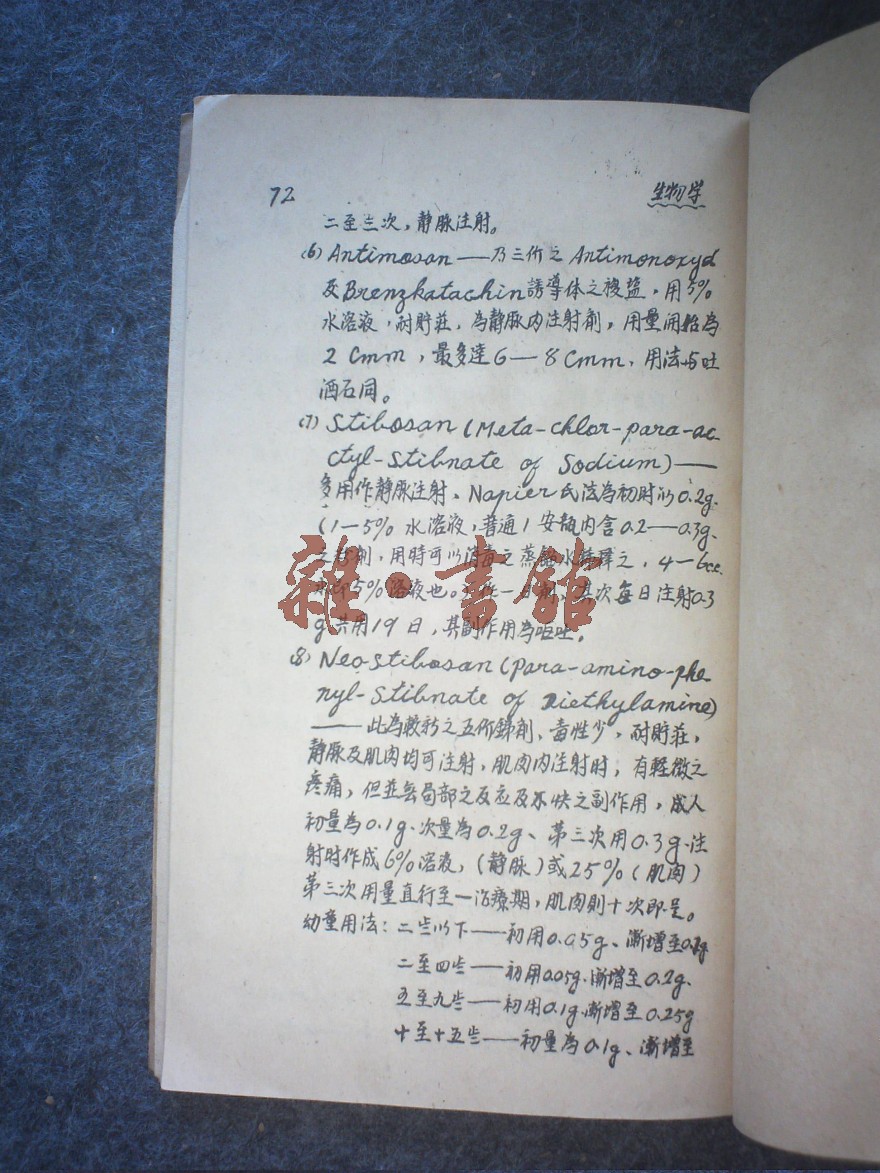 72
生物学
二至三次，静脉注射。
(6) Antimosan——乃三价之 Antimonoxyd
及 Brenzkatachin 誘導体之複盐，用5%
水溶液，耐貯莊，為静脉内注射剤，用量用始為
2 Cmm，最多達6—8 Cmm，用法与吐
酒石同。
(7) Stibosan (Meta-chlor-para-ac-
ctyl-Stibnate of Sodium)——
多用作静脉注射，Napier 氏法為初时以0.2g.
(1—5% 水溶液，普通1安瓿内含0.2—0.3g.
剤，用時可以消毒之蒸餾水稀釋之，4—6cc.
即5%溶液也。其次每日注射0.3
g 共用19日，其副作用為呕吐。
(8) Neo-Stibosan (Para-amino-phe
nyl-Stibnate of Diethylamine)
——此為較新之五价銻剤，毒性少，耐貯莊，
静脉及肌肉均可注射，肌肉内注射时，有輕微之
疼痛，但並無局部之反应及不快之副作用，成人
初量為0.1g. 次量為0.2g、第三次用0.3g. 注
射时作成6%溶液，(静脉)或25%(肌肉)
第三次用量直行至一治療期，肌肉則十次即足。
幼童用法：二岁以下——初用0.05g、漸增至0.1g
二至四岁——初用0.05g. 漸增至0.2g.
五至九岁——初用0.1g. 漸增至0.25g
十至十五岁——初量為0.1g、漸增至
雜·書館